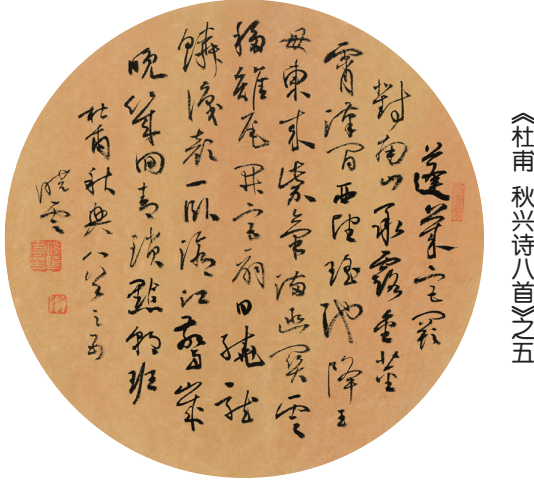 《杜甫 秋兴诗八首》之五
蓬萊宮闕
對南山承露金莖
霄漢間西望瑤池降王
母東來紫氣滿函關雲
移雉尾開宮扇日繞龍
鱗識顏一卧滄江驚歲
晚幾回青瑣點朝班
杜甫秋興八首之五
曉雲